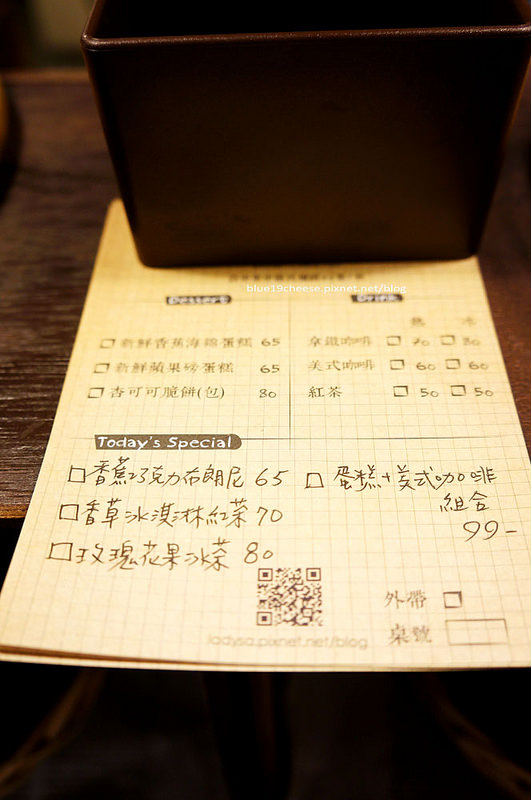 blue19cheese.pixnet.net/blog
Dessert
□新鮮香蕉海綿蛋糕 65
□新鮮蘋果磅蛋糕 65
□杏可可脆餅(包) 80
Drink
熱 冰
拿鐵咖啡 □ 70 □ 80
美式咖啡 □ 60 □ 60
紅茶 □ 50 □ 50
Today's Special
□香蕉巧克力布朗尼 65
□香草冰淇淋紅茶 70
□玫瑰花果冰茶 80
□蛋糕+美式咖啡
組合
99-
外帶 □
桌號
ladysa.pixnet.net/blog